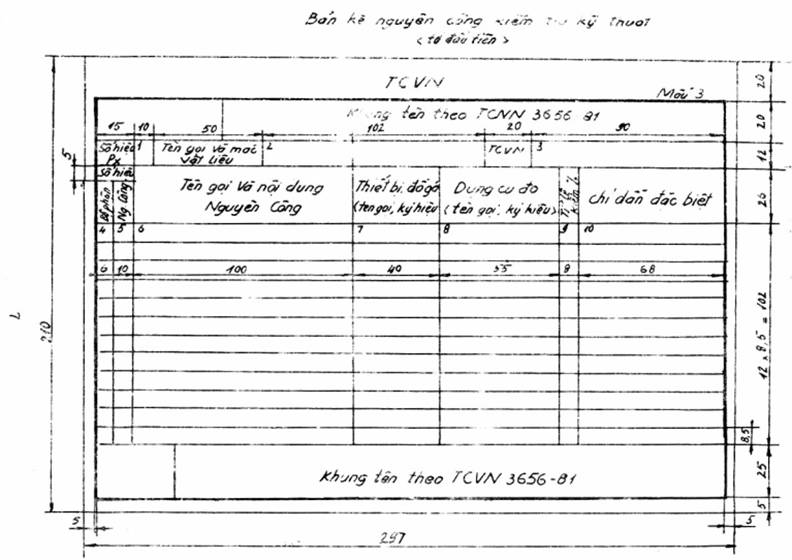 Bản kê nguyên công kiểm tra kỹ thuật
<tờ đầu tiên>
TCVN
Mẫu 3
Khung tên theo TCVN 3656 81
15 10 50 102 20 90
Số hiệu Px 1 Tên gọi và mác vật liệu 2 TCVN 3
Số hiệu
Bộ phận Ng Công Tên gọi và nội dung Nguyên Công Thiết bị, đồ gá (tên gọi, ký hiệu) Dụng cụ đo (tên gọi, ký hiệu) chỉ dẫn đặc biệt
4 5 6 7 8 9 10
6 10 100 40 55 9 68
Khung tên theo TCVN 3656-81
20
20
12
26
12 x 8,5 = 102
8,5
25
5
5
L
210
5
297
5